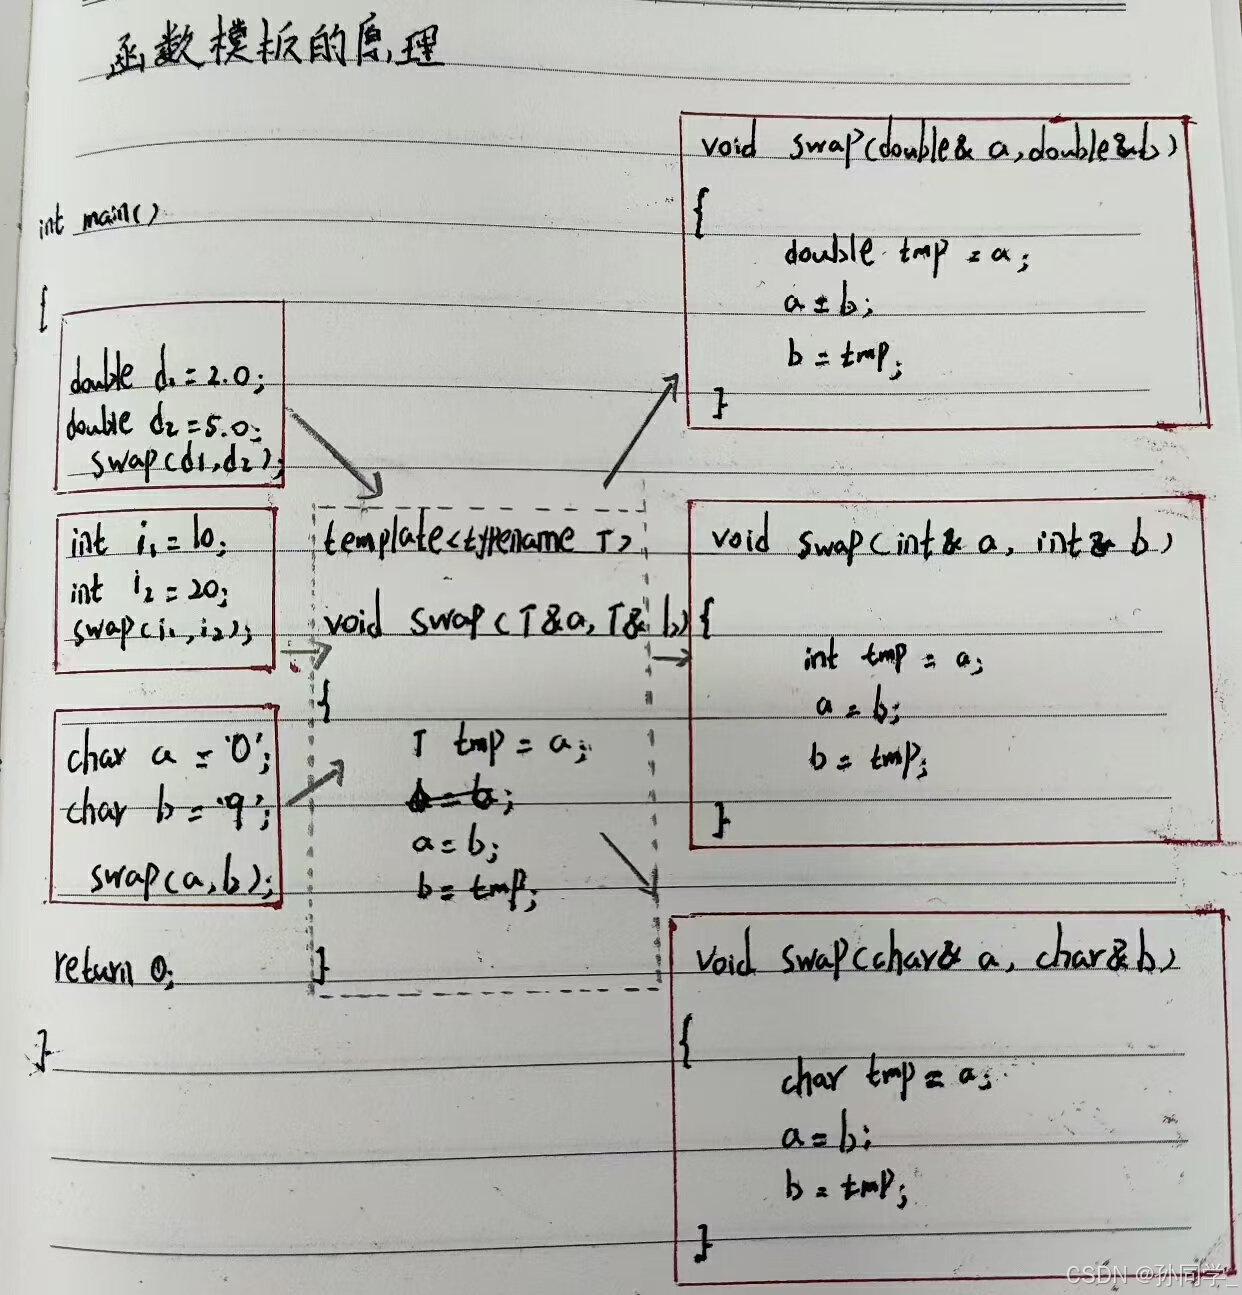 函数模板的原理
int main()
{
double d1 = 2.0;
double d2 = 5.0;
swap(d1,d2);
int i1 = 10;
int i2 = 20;
swap(i1,i2);
char a = '0';
char b = '9';
swap(a,b);
return 0;
}
template<typename T>
void swap(T&a,T& b)
{
T tmp = a;
a=b;
b=tmp;
}
void swap(double& a,double&b)
{
double tmp = a;
a = b;
b = tmp;
}
void swap(int& a, int& b)
{
int tmp = a;
a = b;
b = tmp;
}
void swap(char& a, char&b)
{
char tmp = a;
a = b;
b = tmp;
}
CSDN @孙同学_